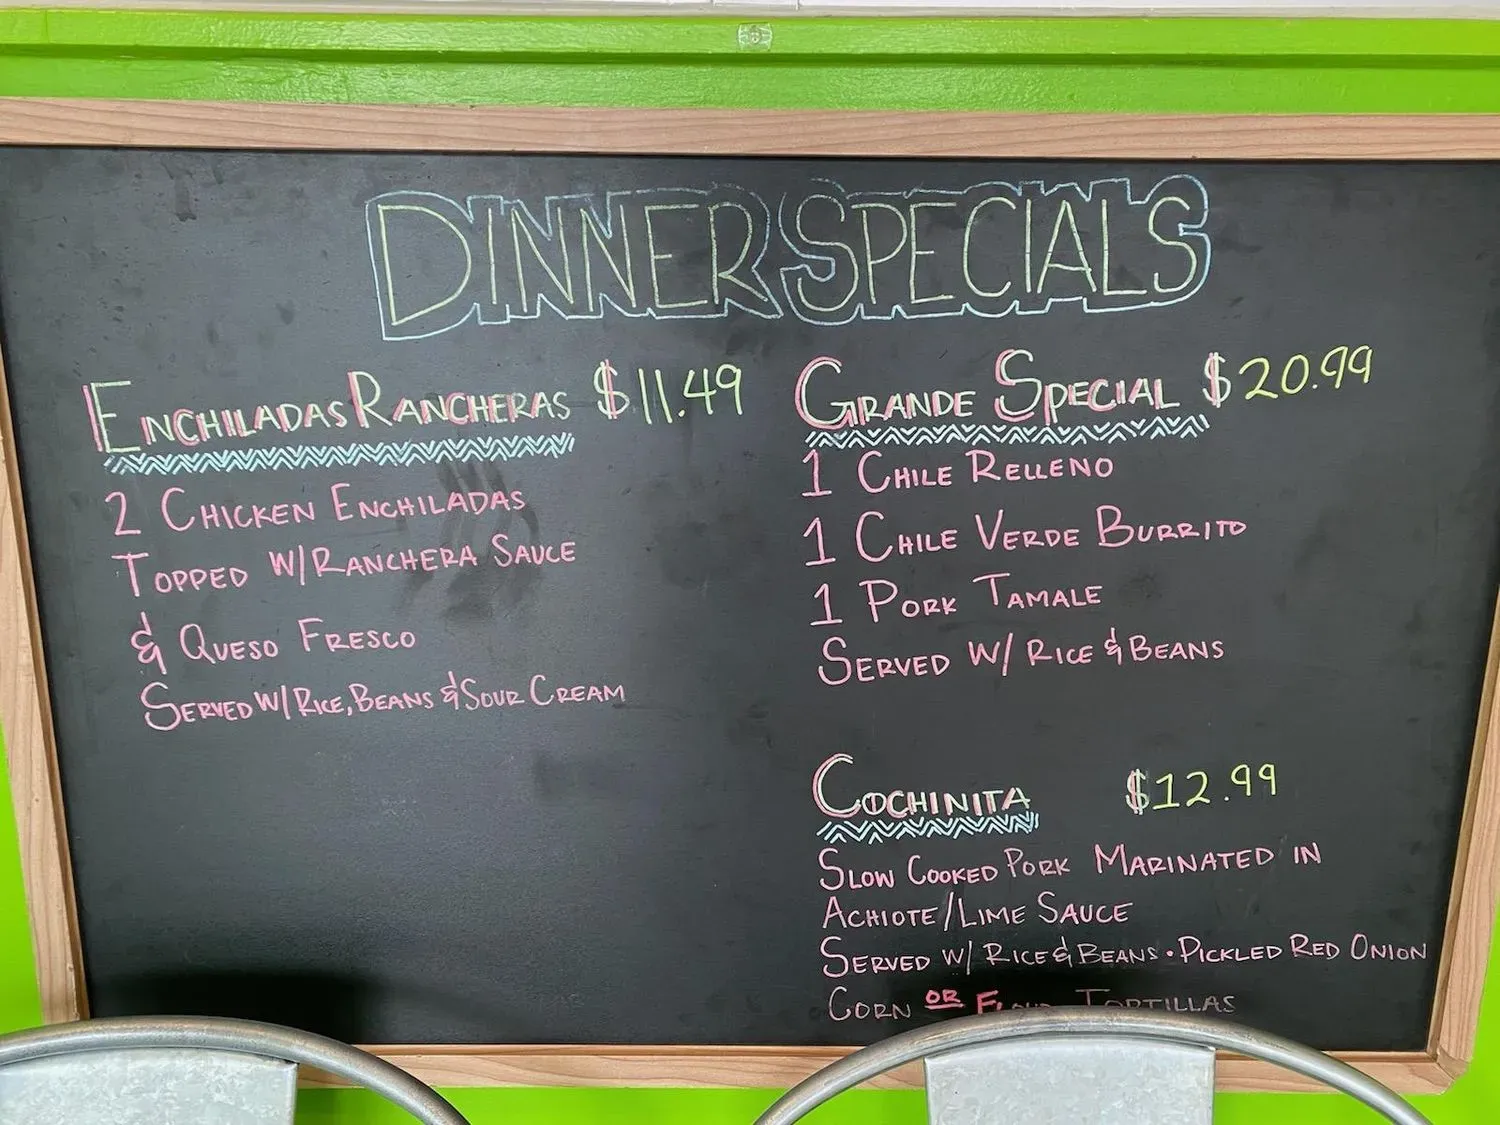 DINNER SPECIALS
ENCHILADAS RANCHERAS $11.49
2 CHICKEN ENCHILADAS
TOPPED W/RANCHERA SAUCE
& QUESO FRESCO
SERVED W/RICE, BEANS & SOUR CREAM
GRANDE SPECIAL $20.99
1 CHILE RELLENO
1 CHILE VERDE BURRITO
1 PORK TAMALE
SERVED W/ RICE & BEANS
COCHINITA $12.99
SLOW COOKED PORK MARINATED IN
ACHIOTE/LIME SAUCE
SERVED W/ RICE & BEANS • PICKLED RED ONION
CORN OR FLOUR TORTILLAS